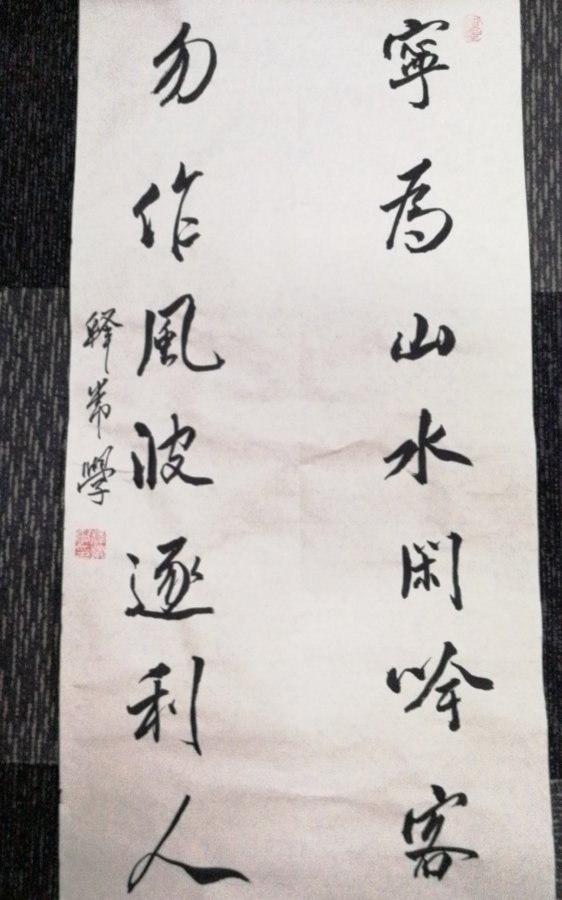 寧為山水閑吟客
勿作風波逐利人
釋常學